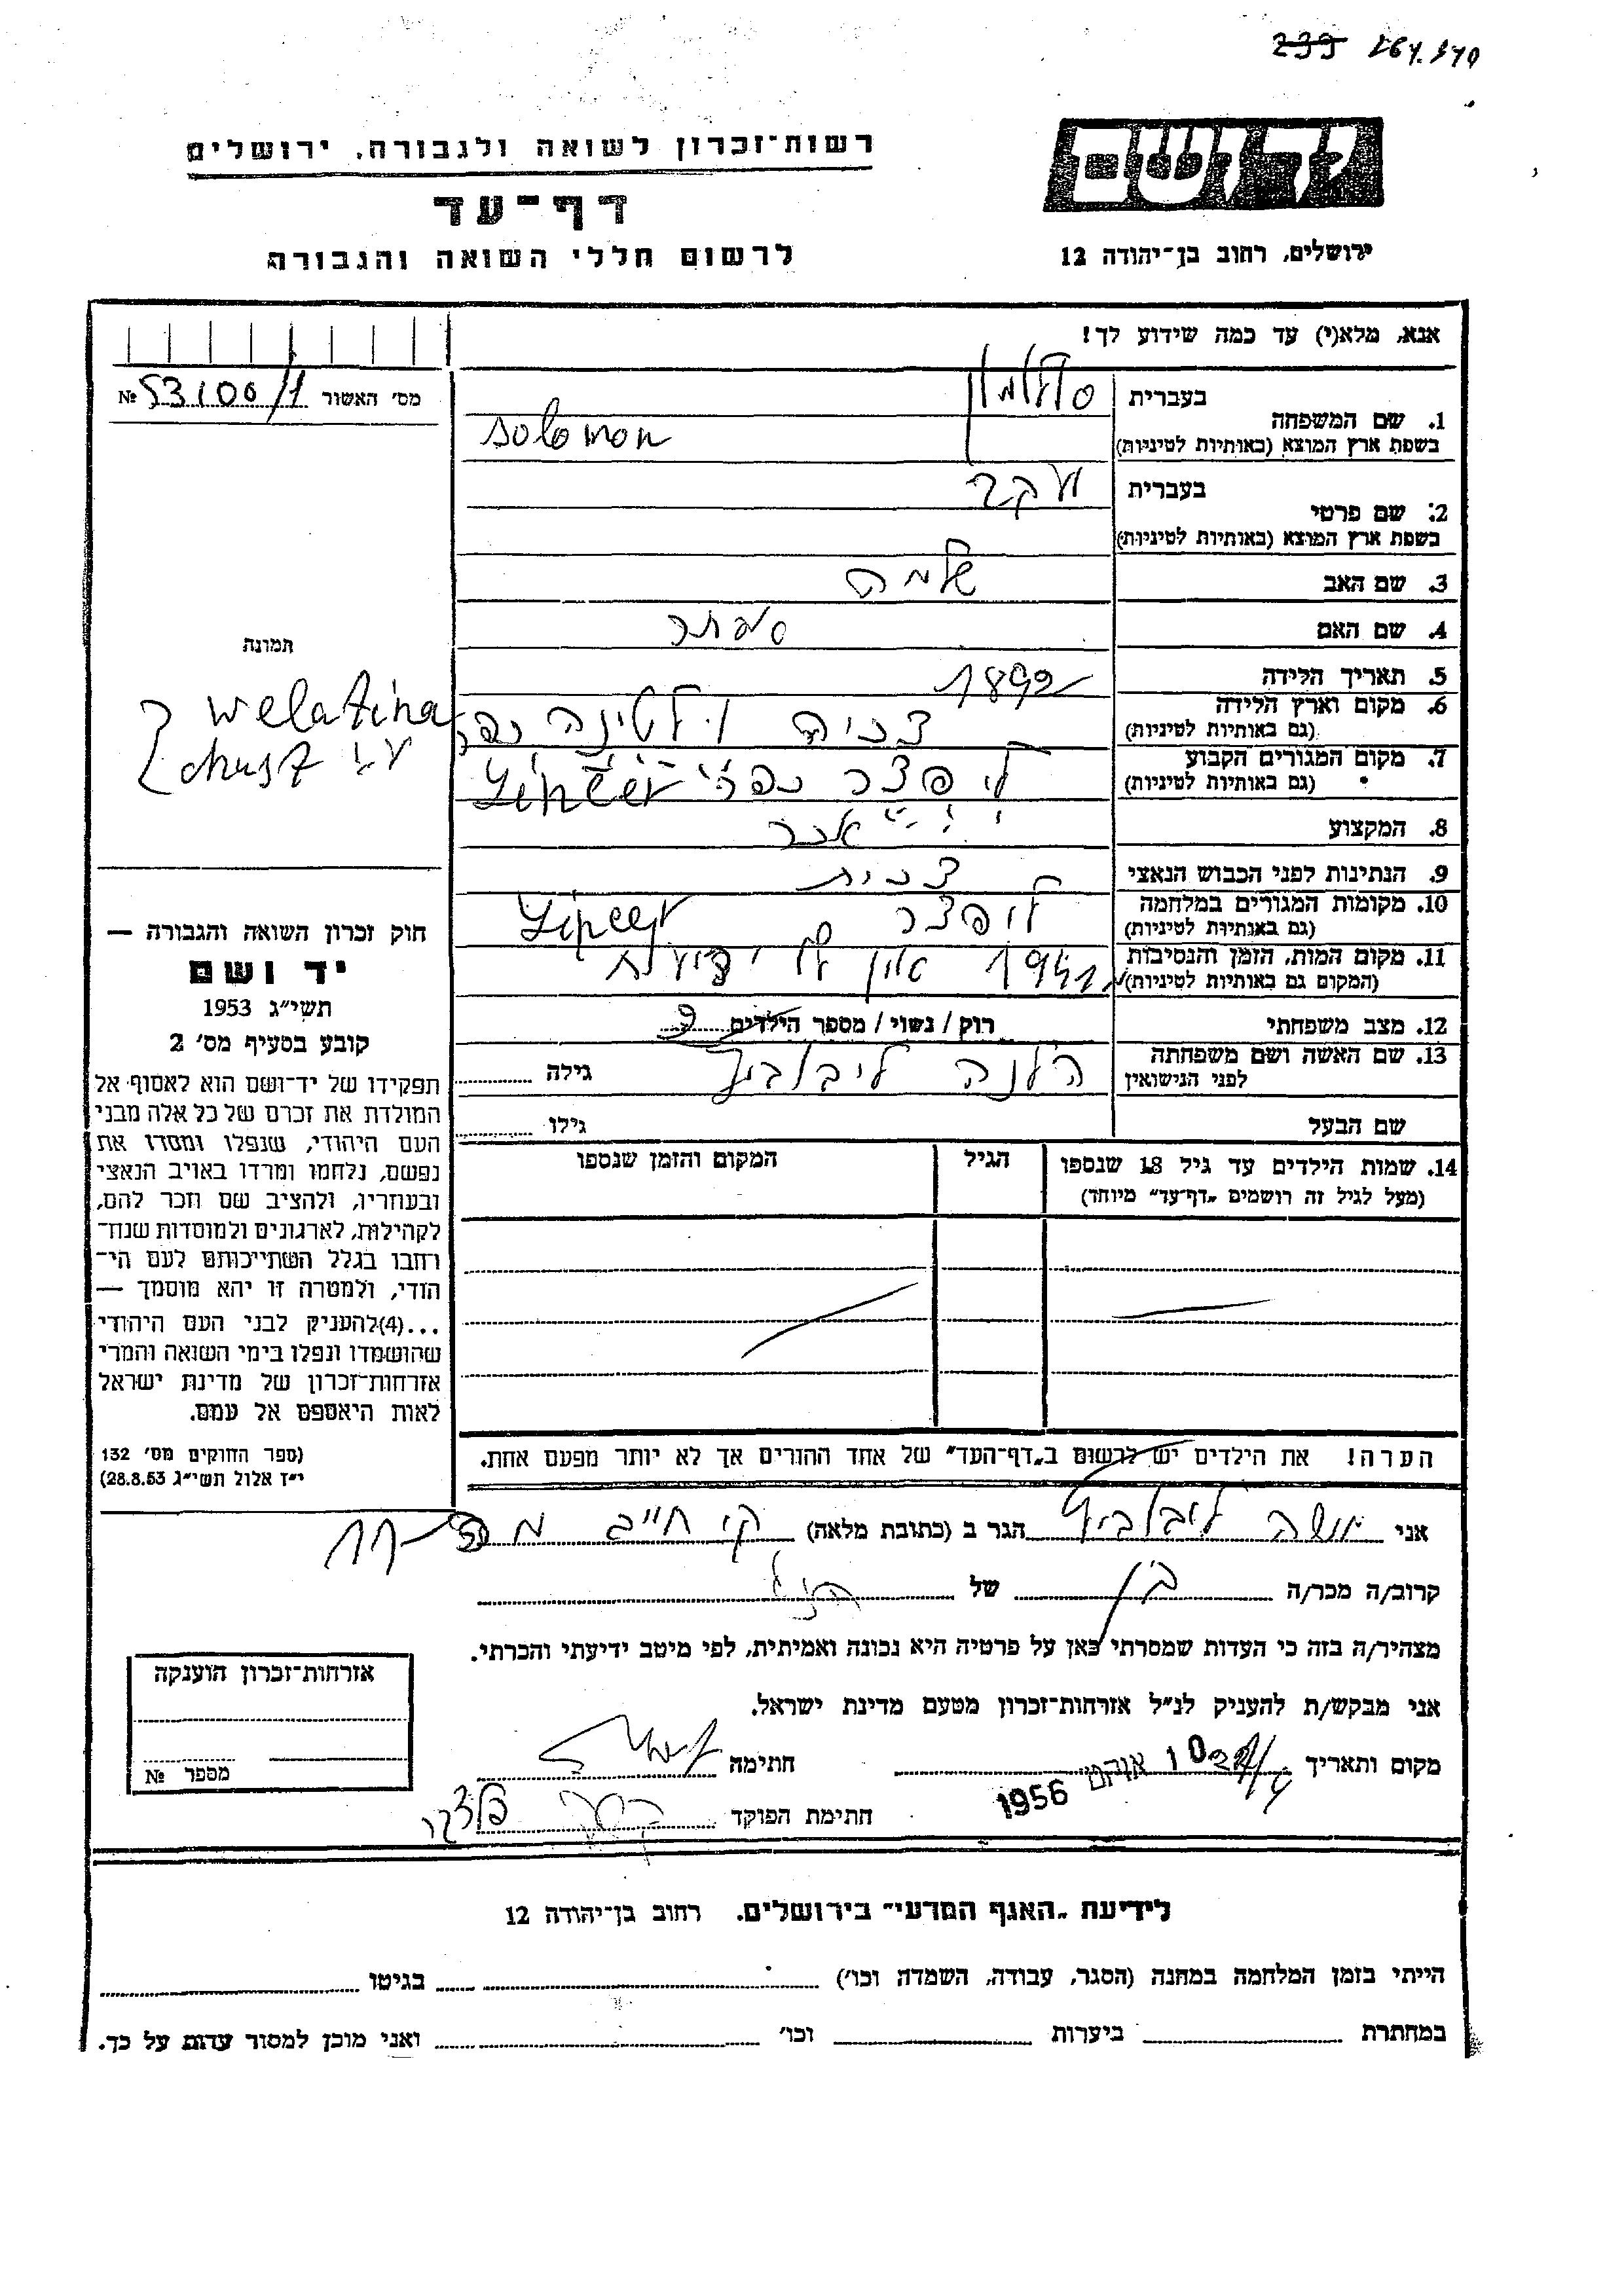 239
רשות־זכרון לשואה ולגבורה, ירושלים
דף־עד
לרשום חללי השואה והגבורה
יד ושם
ירושלים, רחוב בן־יהודה 12
אנא, מלא(י) עד כמה שידוע לך!
מס׳ האשור 53106/1 №
1. שם המשפחה
בעברית סולומון
בשפת ארץ המוצא (באותיות לטיניות) Solomon
2. שם פרטי
בעברית יעקב
בשפת ארץ המוצא (באותיות לטיניות)
3. שם האב שלמה
4. שם האם אסתר
5. תאריך הלידה 1892
6. מקום וארץ הלידה
(גם באותיות לטיניות)
צ׳כיה ולטינה נפה
7. מקום המגורים הקבוע
(גם באותיות לטיניות)
ליפצר נפה Lipcer
8. המקצוע אכר
9. הנתינות לפני הכבוש הנאצי צ׳כית
10. מקומות המגורים במלחמה
(גם באותיות לטיניות)
ליפצר Lipcer
11. מקום המות, הזמן והנסיבות
(המקום גם באותיות לטיניות)
1941 אין ידיעות
12. מצב משפחתי רוק / נשוי / מספר הילדים 9
13. שם האשה ושם משפחתה
לפני הנישואין
הלנה ליבוביץ גילה
שם הבעל גילו
14. שמות הילדים עד גיל 18 שנספו
(מעל לגיל זה רושמים „דף־עד״ מיוחד)
הגיל
המקום והזמן שנספו
הערה! את הילדים יש לרשום ב„דף־העד״ של אחד ההורים אך לא יותר מפעם אחת.
תמונה
welatina
chust עיר
חוק זכרון השואה והגבורה —
יד ושם
תשי״ג 1953
קובע בסעיף מס׳ 2
תפקידו של יד־ושם הוא לאסוף אל
המולדת את זכרם של כל אלה מבני
העם היהודי, שנפלו ומסרו את
נפשם, נלחמו ומרדו באויב הנאצי
ובעוזריו, ולהציב שם וזכר להם,
לקהילות, לארגונים ולמוסדות שנח־
רחבו בגלל השתייכותם לעם הי־
הודי, ולמטרה זו יהא מוסמך —
...(4)להעניק לבני העם היהודי
שהושמדו ונפלו בימי השואה והמרי
אזרחות־זכרון של מדינת ישראל
לאות היאספם אל עמם.
(ספר החוקים מס׳ 132
י״ז אלול תשי״ג 28.8.53)
אני משה ליבוביץ הגר ב (כתובת מלאה) קי חיים 11
קרוב/ה מכר/ה בן של הנ״ל
מצהיר/ה בזה כי העדות שמסרתי כאן על פרטיה היא נכונה ואמיתית, לפי מיטב ידיעתי והכרתי.
אני מבקש/ת להעניק לנ״ל אזרחות־זכרון מטעם מדינת ישראל.
מקום ותאריך 10 אוקט 1956 חתימה
חתימת הפוקד
אזרחות־זכרון הוענקה
מספר №
לידיעת „האגף המדעי״ בירושלים. רחוב בן־יהודה 12
הייתי בזמן המלחמה במחנה (הסגר, עבודה, השמדה וכו׳) בגיטו
במחתרת ביערות וכו׳ ואני מוכן למסור עדות על כך.